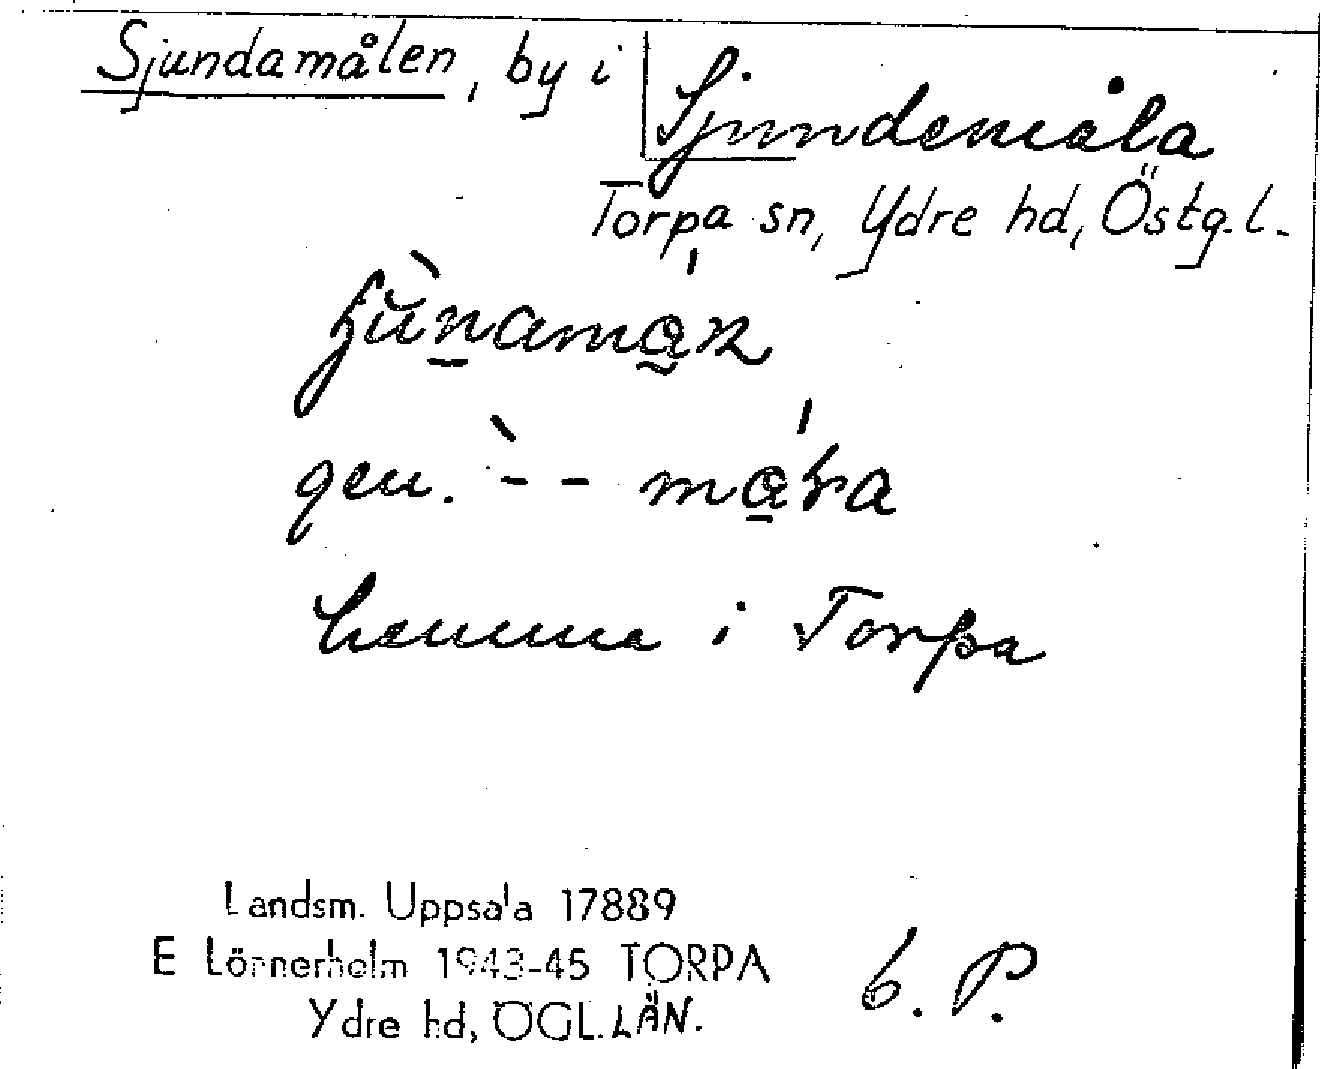 Sjundamålen, by i
Sjundemåla
Torpa sn, Ydre hd, Östg. l.
gen. `- - 
hemma i Torpa
Landsm. Uppsala 17889
E Lönnerholm 1943-45 TORPA
Ydre hd, ÖGL. LÄN.
6. P.